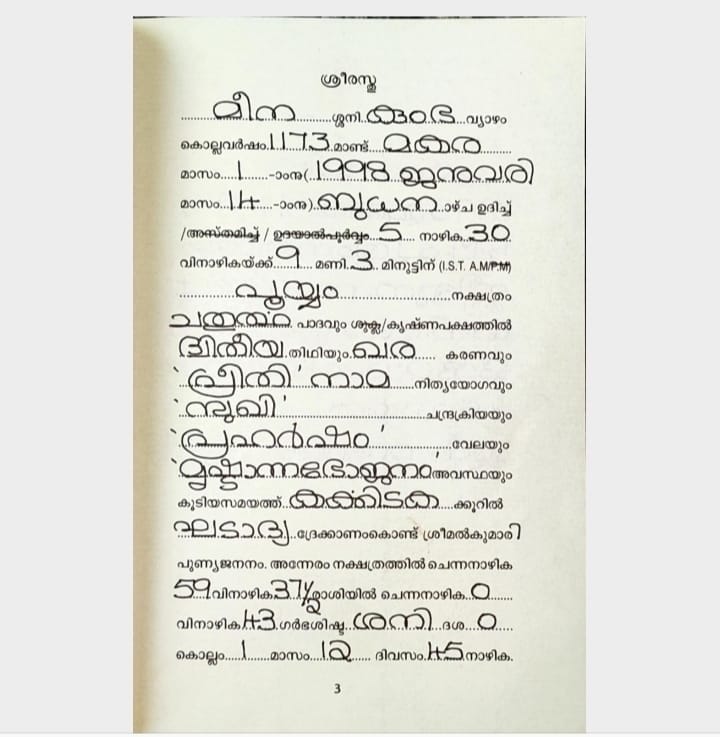 ശ്രീരസ്തു
മീന ശ്ശനി കുംഭ വ്യാഴം
കൊല്ലവർഷം 1173 മാണ്ട് മകര
മാസം 1 -ാംനു( 1998 ജനുവരി
മാസം 14 -ാംനു) ബുധന ാഴ്ച ഉദിച്ച്
/അസ്തമിച്ച് / ഉദയാൽപൂർവ്വം 5 നാഴിക 30
വിനാഴികയ്ക്ക് 9 മണി 3 മിനുട്ടിന് (I.S.T. A.M/P.M)
പൂയ്യം നക്ഷത്രം
ചതുർത്ഥ പാദവും ശുക്ല/കൃഷ്ണപക്ഷത്തിൽ
ദ്വിതീയ തിഥിയും ഖര കരണവും
'പ്രീതി' നാമ നിത്യയോഗവും
'സുഖി' ചന്ദ്രക്രിയയും
'പ്രഹർഷം' വേലയും
'മൃഷ്ടാന്നഭോജനം' അവസ്ഥയും
കൂടിയസമയത്ത് കർക്കിടക ക്കൂറിൽ
ഘടാദ്യ ദ്രേക്കാണംകൊണ്ട് ശ്രീമൽകുമാരി
പുണ്യജനനം. അന്നേരം നക്ഷത്രത്തിൽ ചെന്നനാഴിക
59 വിനാഴിക 37½ രാശിയിൽ ചെന്നനാഴിക 0
വിനാഴിക 43 ഗർഭശിഷ്ട ശനി ദശ 0
കൊല്ലം 1 മാസം 12 ദിവസം 45 നാഴിക.
3